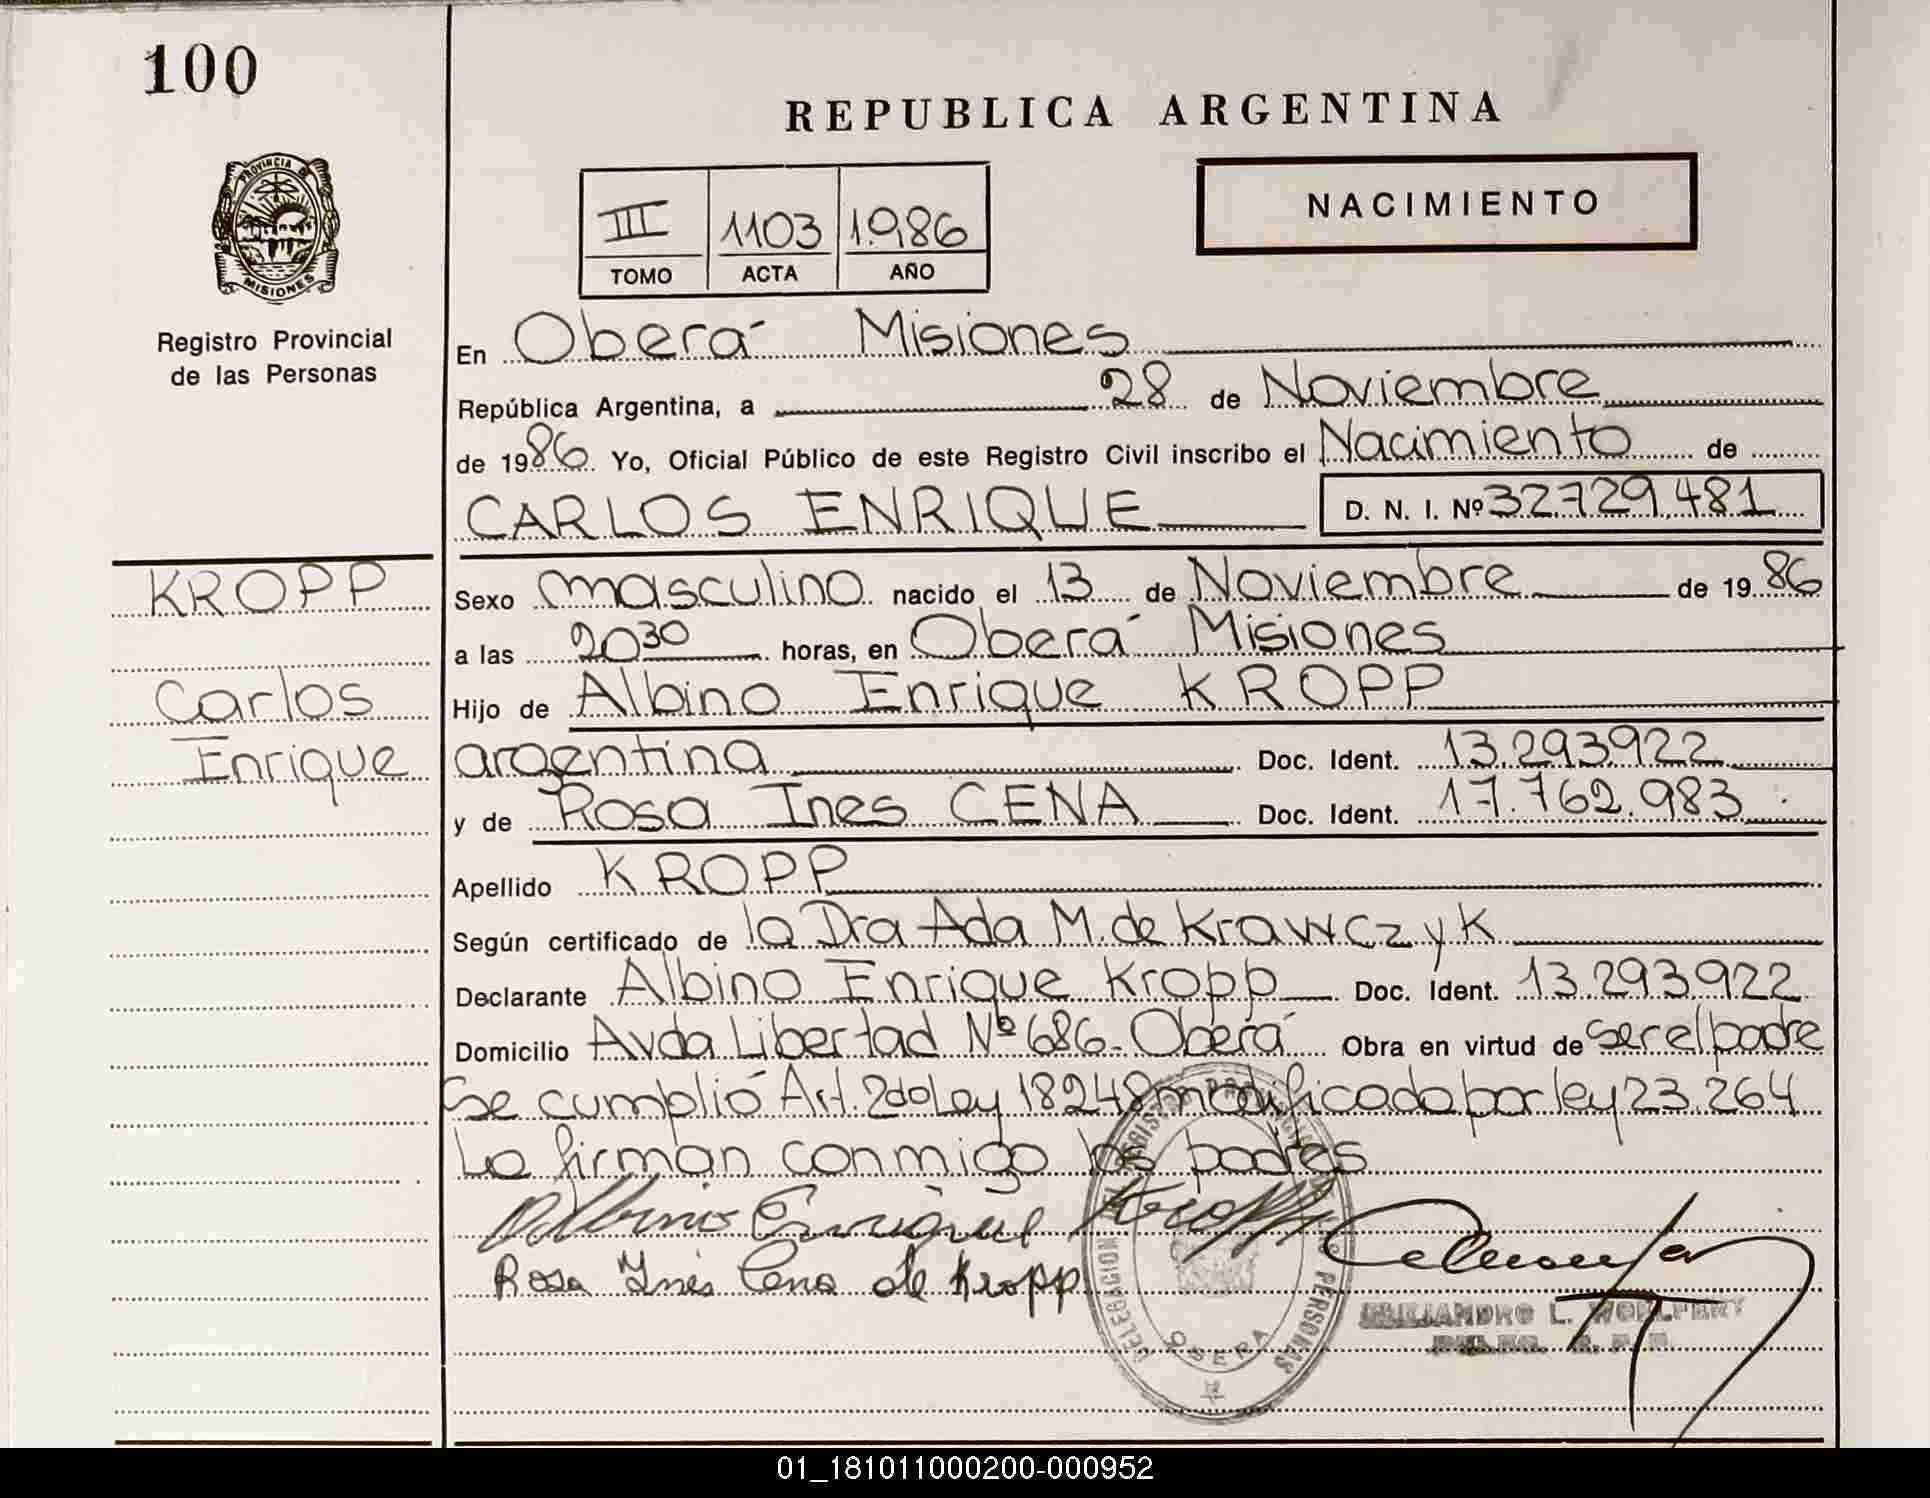 100
REPUBLICA ARGENTINA
PROVINCIA DE
MISIONES
NACIMIENTO
III 1103 1.986
TOMO ACTA AÑO
Registro Provincial
de las Personas
En Oberá Misiones
República Argentina, a 28 de Noviembre
de 1986 Yo, Oficial Público de este Registro Civil inscribo el Nacimiento de
CARLOS ENRIQUE D. N. I. Nº 32.729.481
KROPP
Carlos
Enrique
Sexo masculino nacido el 13 de Noviembre de 1986
a las 20 30 horas, en Oberá Misiones
Hijo de Albino Enrique KROPP
argentina Doc. Ident. 13.293.922
y de Rosa Ines CENA Doc. Ident. 17.762.983
Apellido KROPP
Según certificado de la Dra Ada M. de Krawczyk
Declarante Albino Enrique Kropp Doc. Ident. 13.293.922
Domicilio Avda Libertad Nº 686 - Oberá Obra en virtud de ser el padre
Se cumplió Art. 2do Ley 18248 modificado por ley 23.264
Lo firman conmigo los padres
Albino Enrique Kropp
Rosa Inés Cena de Kropp
DELEGACION DEL REGISTRO PROVINCIAL DE LAS PERSONAS
OBERA
L. WOHLFERT
01_181011000200-000952